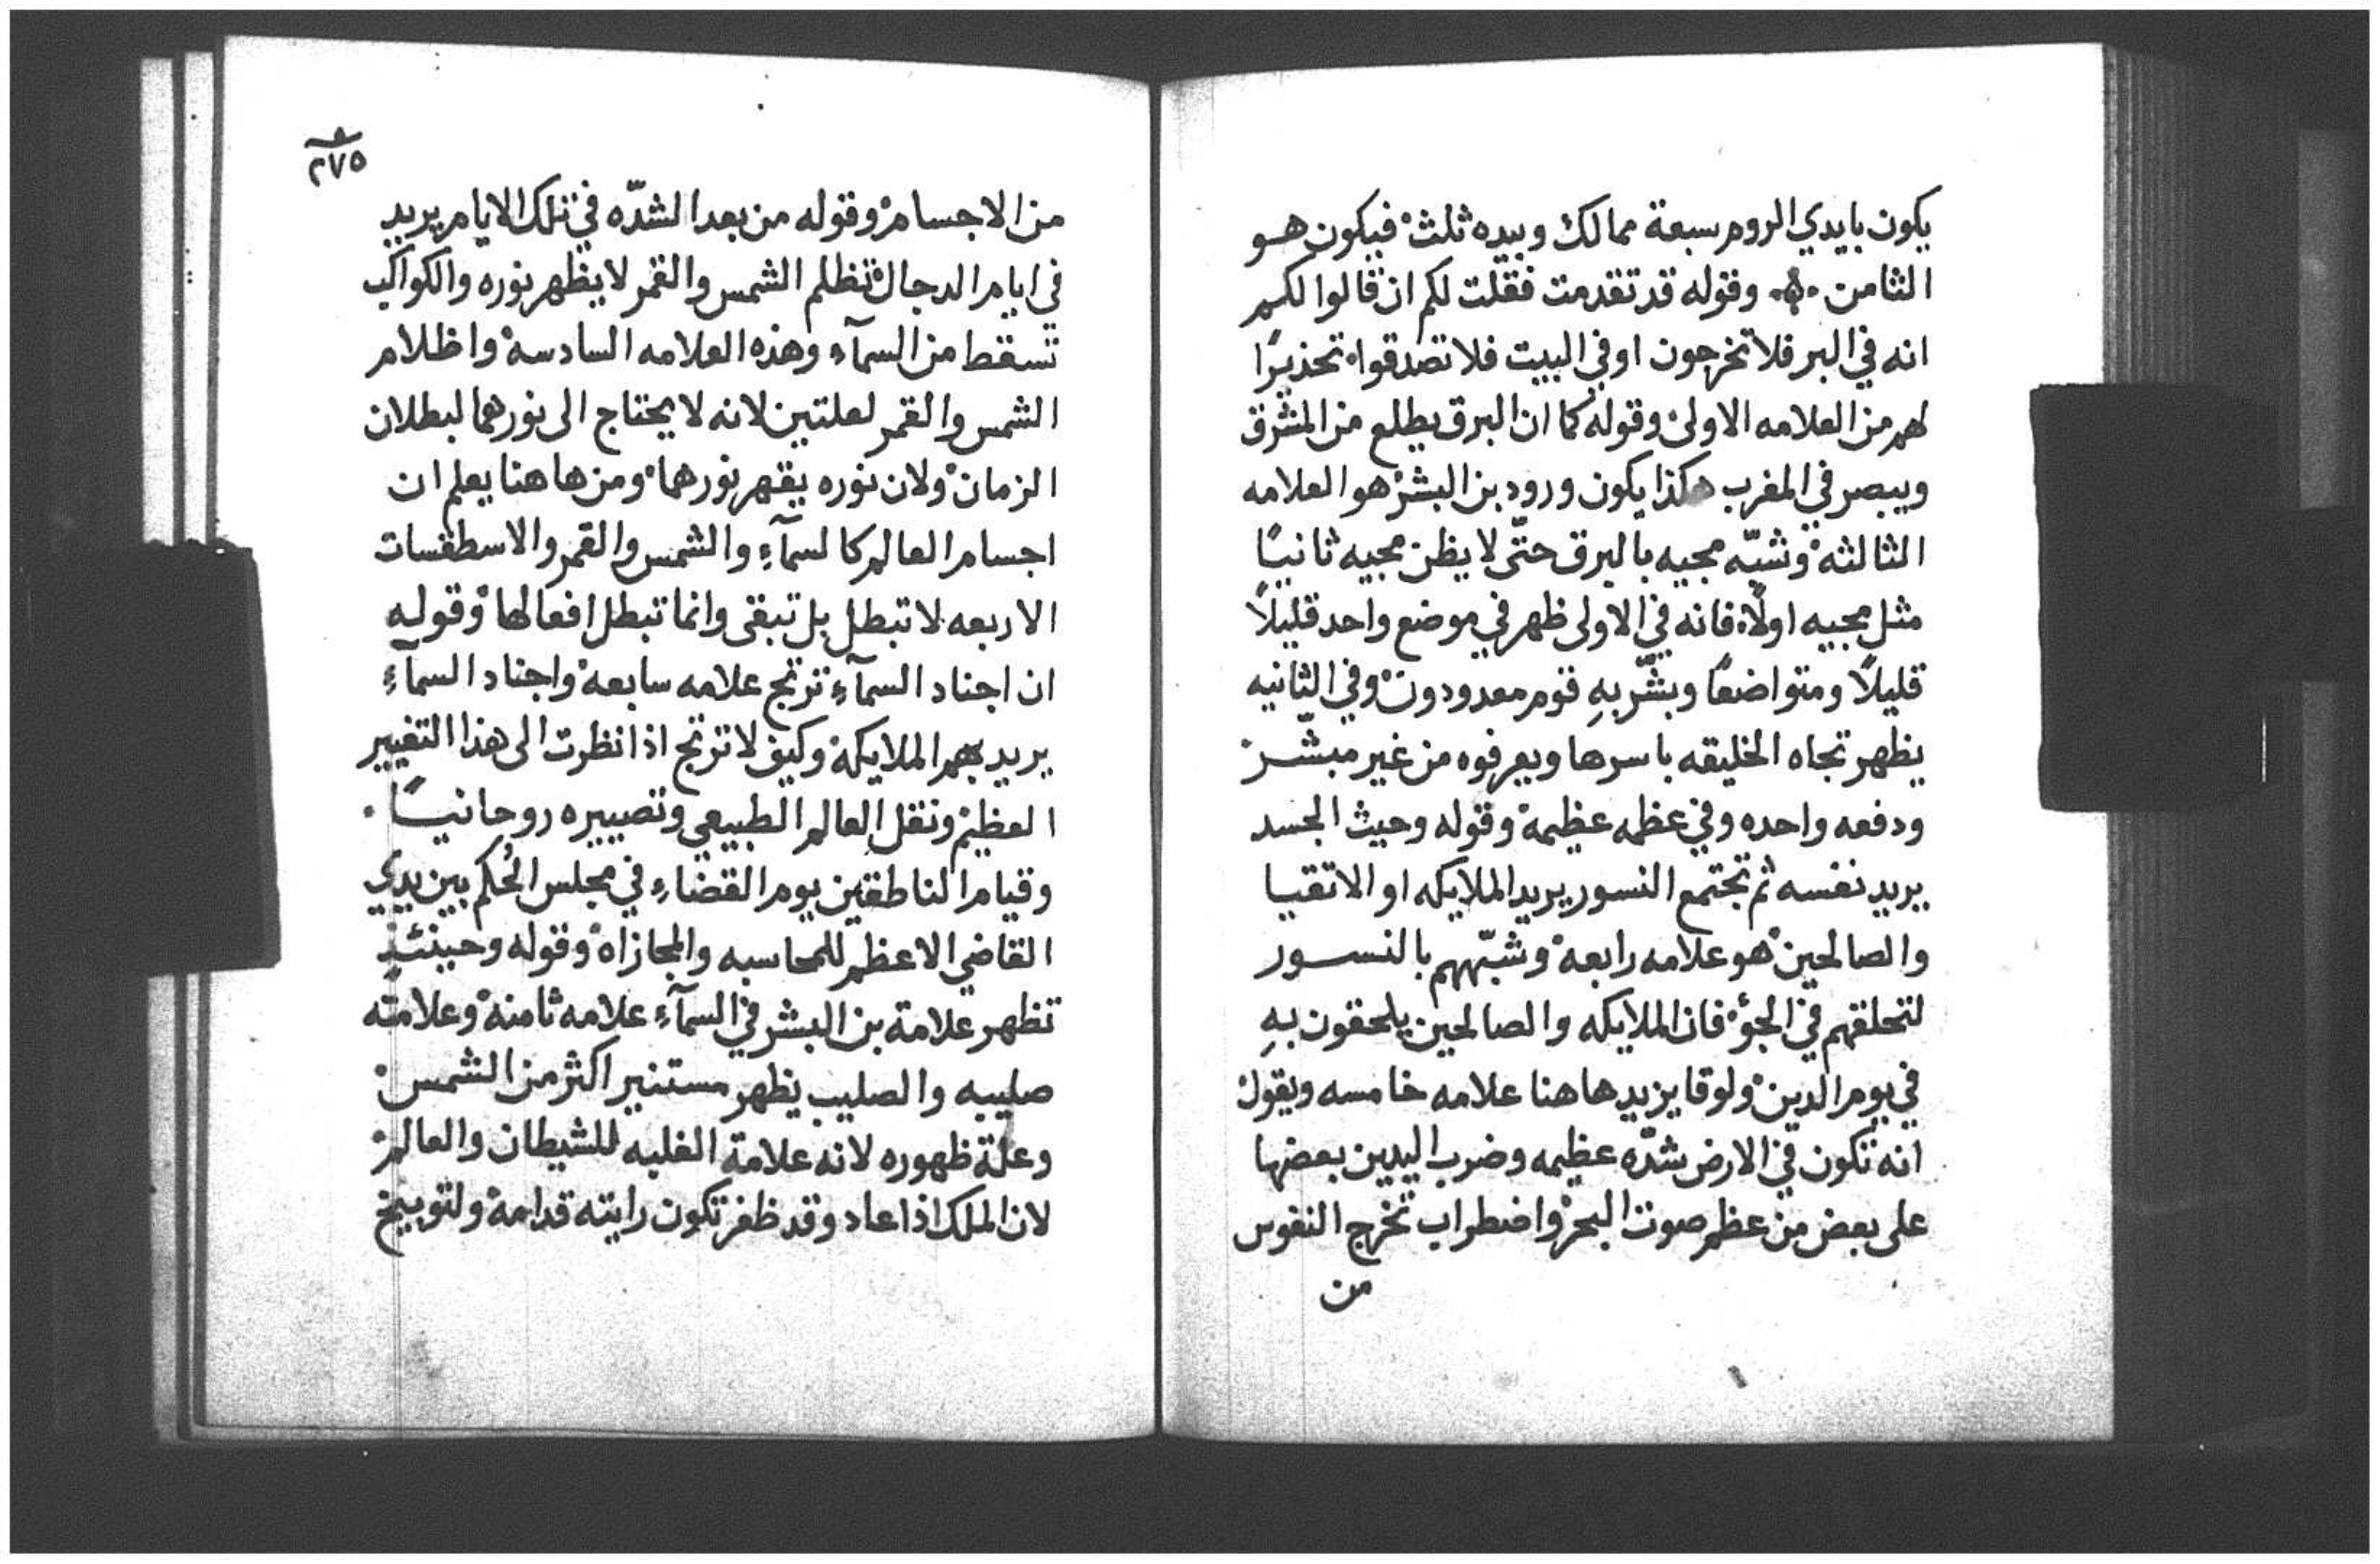 يكون بايدي الروم سبعة ممالك وبيده ثلث فيكون هو
الثامن وقوله قد تقدمت فقلت لكم ان قالوا لكم
انه في البر فلا تخرجون او في البيت فلا تصدقوا تحذيرًا
لهم من العلامه الاولى وقوله كما ان البرق يطلع من المشرق
ويبصر في المغرب هكذا يكون ورود بن البشر هو العلامه
الثالثه وشبّه مجيه بالبرق حتّى لا يظن مجيه ثانيًا
مثل مجيه اولًا فانه في الاولى ظهر في موضع واحد قليلًا
قليلًا ومتواضعًا وبشّر بهِ قوم معدودون وفي الثانيه
يظهر تجاه الخليقه باسرها ويعرفوه من غير مبشّر
ودفعه واحده وفي عظمه عظيمة وقوله وحيث الجسد
يريد نفسه ثم تجتمع النسور يريد الملايكه او الاتقيا
والصالحين هو علامه رابعة وشبّههم بالنسور
لتحلقهم في الجوّ فان الملايكه والصالحين يلحقون بهِ
في يوم الدين ولوقا يزيد هاهنا علامه خامسه ويقول
انه تكون في الارض شدّه عظيمه وضرب اليدين بعضها
على بعض من عظم صوت البحر واضطراب تخرج النفوس
من
٢٧٥
من الاجسام وقوله من بعد الشدّه في تلك الايام يريد
في ايام الدجال تظلم الشمس والقمر لا يظهر نوره والكواكب
تسقط من السمآء وهذه العلامه السادسة واظلام
الشمس والقمر لعلتين لانه لا يحتاج الى نورهما لبطلان
الزمان ولان نوره يقهر نورهما ومن هاهنا يعلم ان
اجسام العالم كالسمآءِ والشمس والقمر والاسطقسات
الاربعه لا تبطل بل تبقى وانما تبطل افعالها وقوله
ان اجناد السمآءِ ترتج علامه سابعة واجناد السمآءِ
يريد بهم الملايكة وكيف لا ترتج اذا نظرت الى هذا التغيير
العظيم ونقل العالم الطبيعي وتصييره روحانيًا
وقيام الناطقين يوم القضاءِ في مجلس الحُكم بين يدي
القاضي الاعظم للمحاسبه والمجازاه وقوله وحينئذٍ
تظهر علامة بن البشر في السمآءِ علامه ثامنة وعلامته
صليبه والصليب يظهر مستنير اكثر من الشمس
وعلة ظهوره لانه علامة الغلبه للشيطان والعالم
لان الملك اذا عاد وقد ظفر تكون رايته قدامة ولتوبيخ